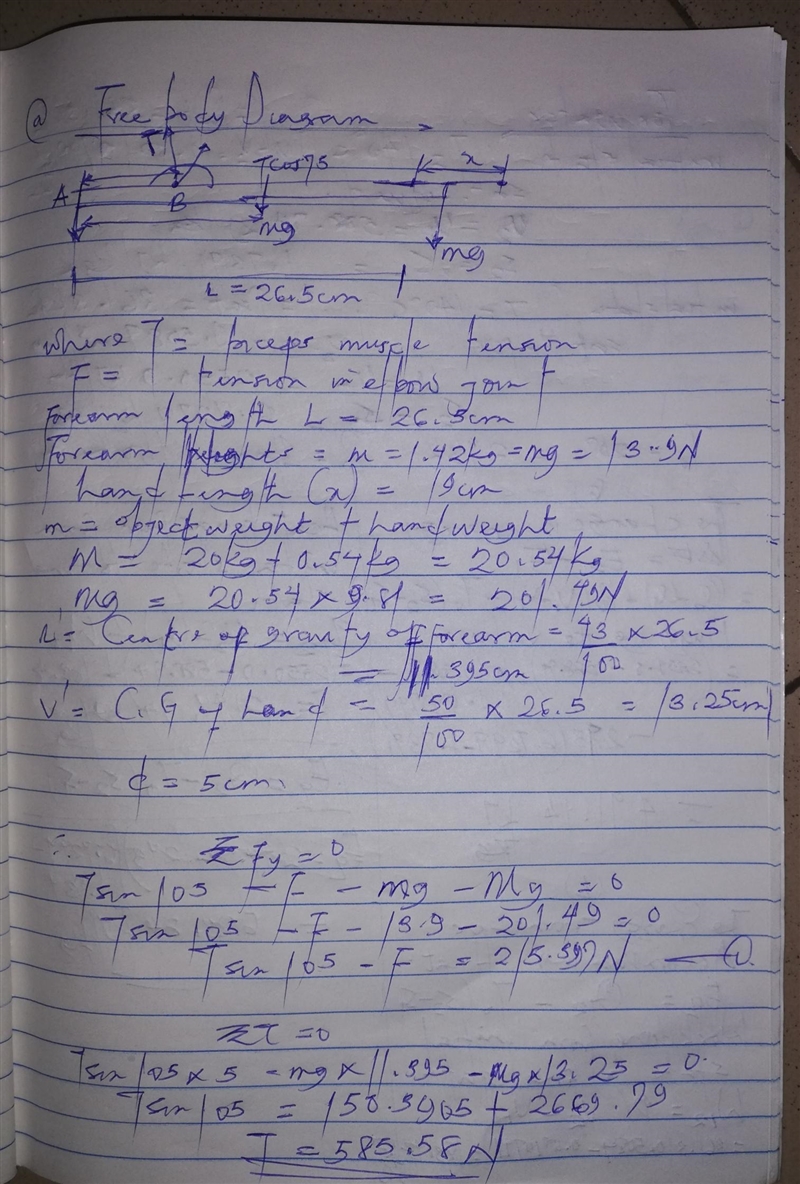 a Free body Diagram
T
Tcos75
x
A
B
mg
mg
L = 26.5cm
where T = biceps muscle tension
F = tension in elbow joint
Forearm length L = 26.5cm
Forearm weights = m = 1.42kg = mg = 13.9N
hand length (x) = 19cm
m = object weight + hand weight
M = 20kg + 0.54kg = 20.54kg
Mg = 20.54 x 9.81 = 201.49N
L' = Centre of gravity of forearm = 43/100 x 26.5
= 11.395cm
V' = C.G of hand = 50/100 x 26.5 = 13.25cm
d = 5cm
∴ ΣFy = 0
Tsin 105 - F - mg - Mg = 0
Tsin 105 - F - 13.9 - 201.49 = 0
Tsin 105 - F = 215.397N — 1.
Στ = 0
Tsin 105 x 5 - mg x 11.395 - Mg x 13.25 = 0.
Tsin 105 = 158.3905 + 2669.79
T = 585.58N